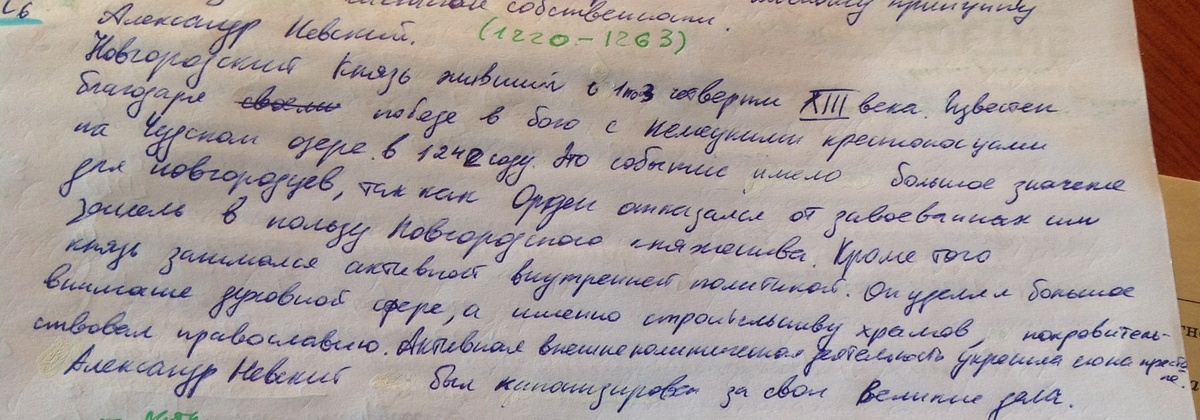 C6
частной собственности
принципу
Александр Невский. (1220-1263)
Новгородский Князь живший в 1 по 3 четверти XIII века. Известен
благодаря победе в бою с немецкими крестоносцами
на Чудском озере в 1242 году. Это событие имело большое значение
для новгородцев, так как Орден отказался от завоеванных им
земель в пользу Новгородского княжества. Кроме того
князь занимался активной внутренней политикой. Он уделял большое
внимание духовной сфере, а именно строительству храмов, покровитель-
ствовал православию. Активная внешнеполитическая деятельность
Александр Невский был канонизирован за свои Великие дела.